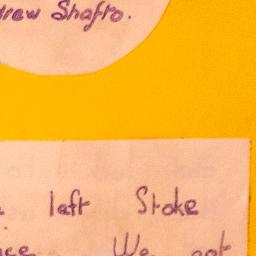 Shafto.
left Stoke
We got